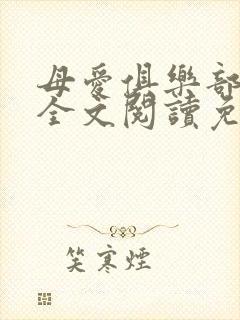 母愛俱樂部
全文閱讀免
笑寒煙